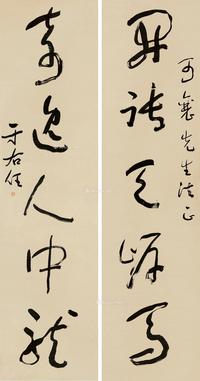 可襄先生法正
開張天岸馬
奇逸人中龍
于右任